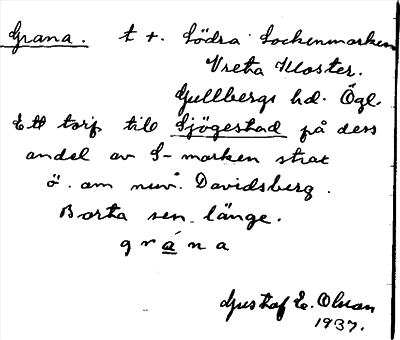 Grana. t +. Södra Sockenmarken
Vreta Kloster.
Gullbergs hd. Ögl.
Ett torp till Sjögestad på dess
andel av S-marken strax
ö. om nuv. Davidsberg.
Borta sen länge.
grána
Gustaf E. Olsson
1937.